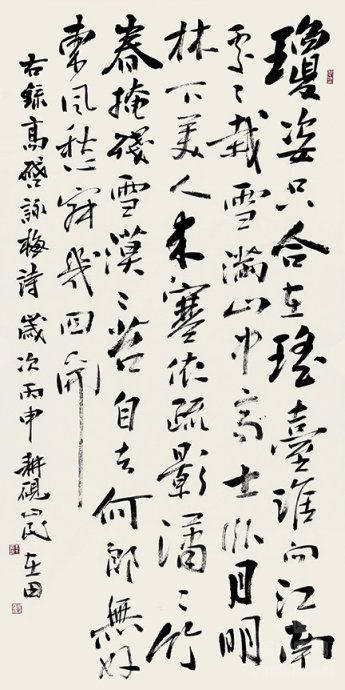 瓊姿只合在瑤臺誰向江南
處々栽雪滿山中高士臥月明
林下美人來寒依疏影瀟々竹
春掩殘雪漠々苔自去何郎無好
東風愁寂幾回開
右錄高啓詠梅詩 歲次丙申 耕硯山民在田